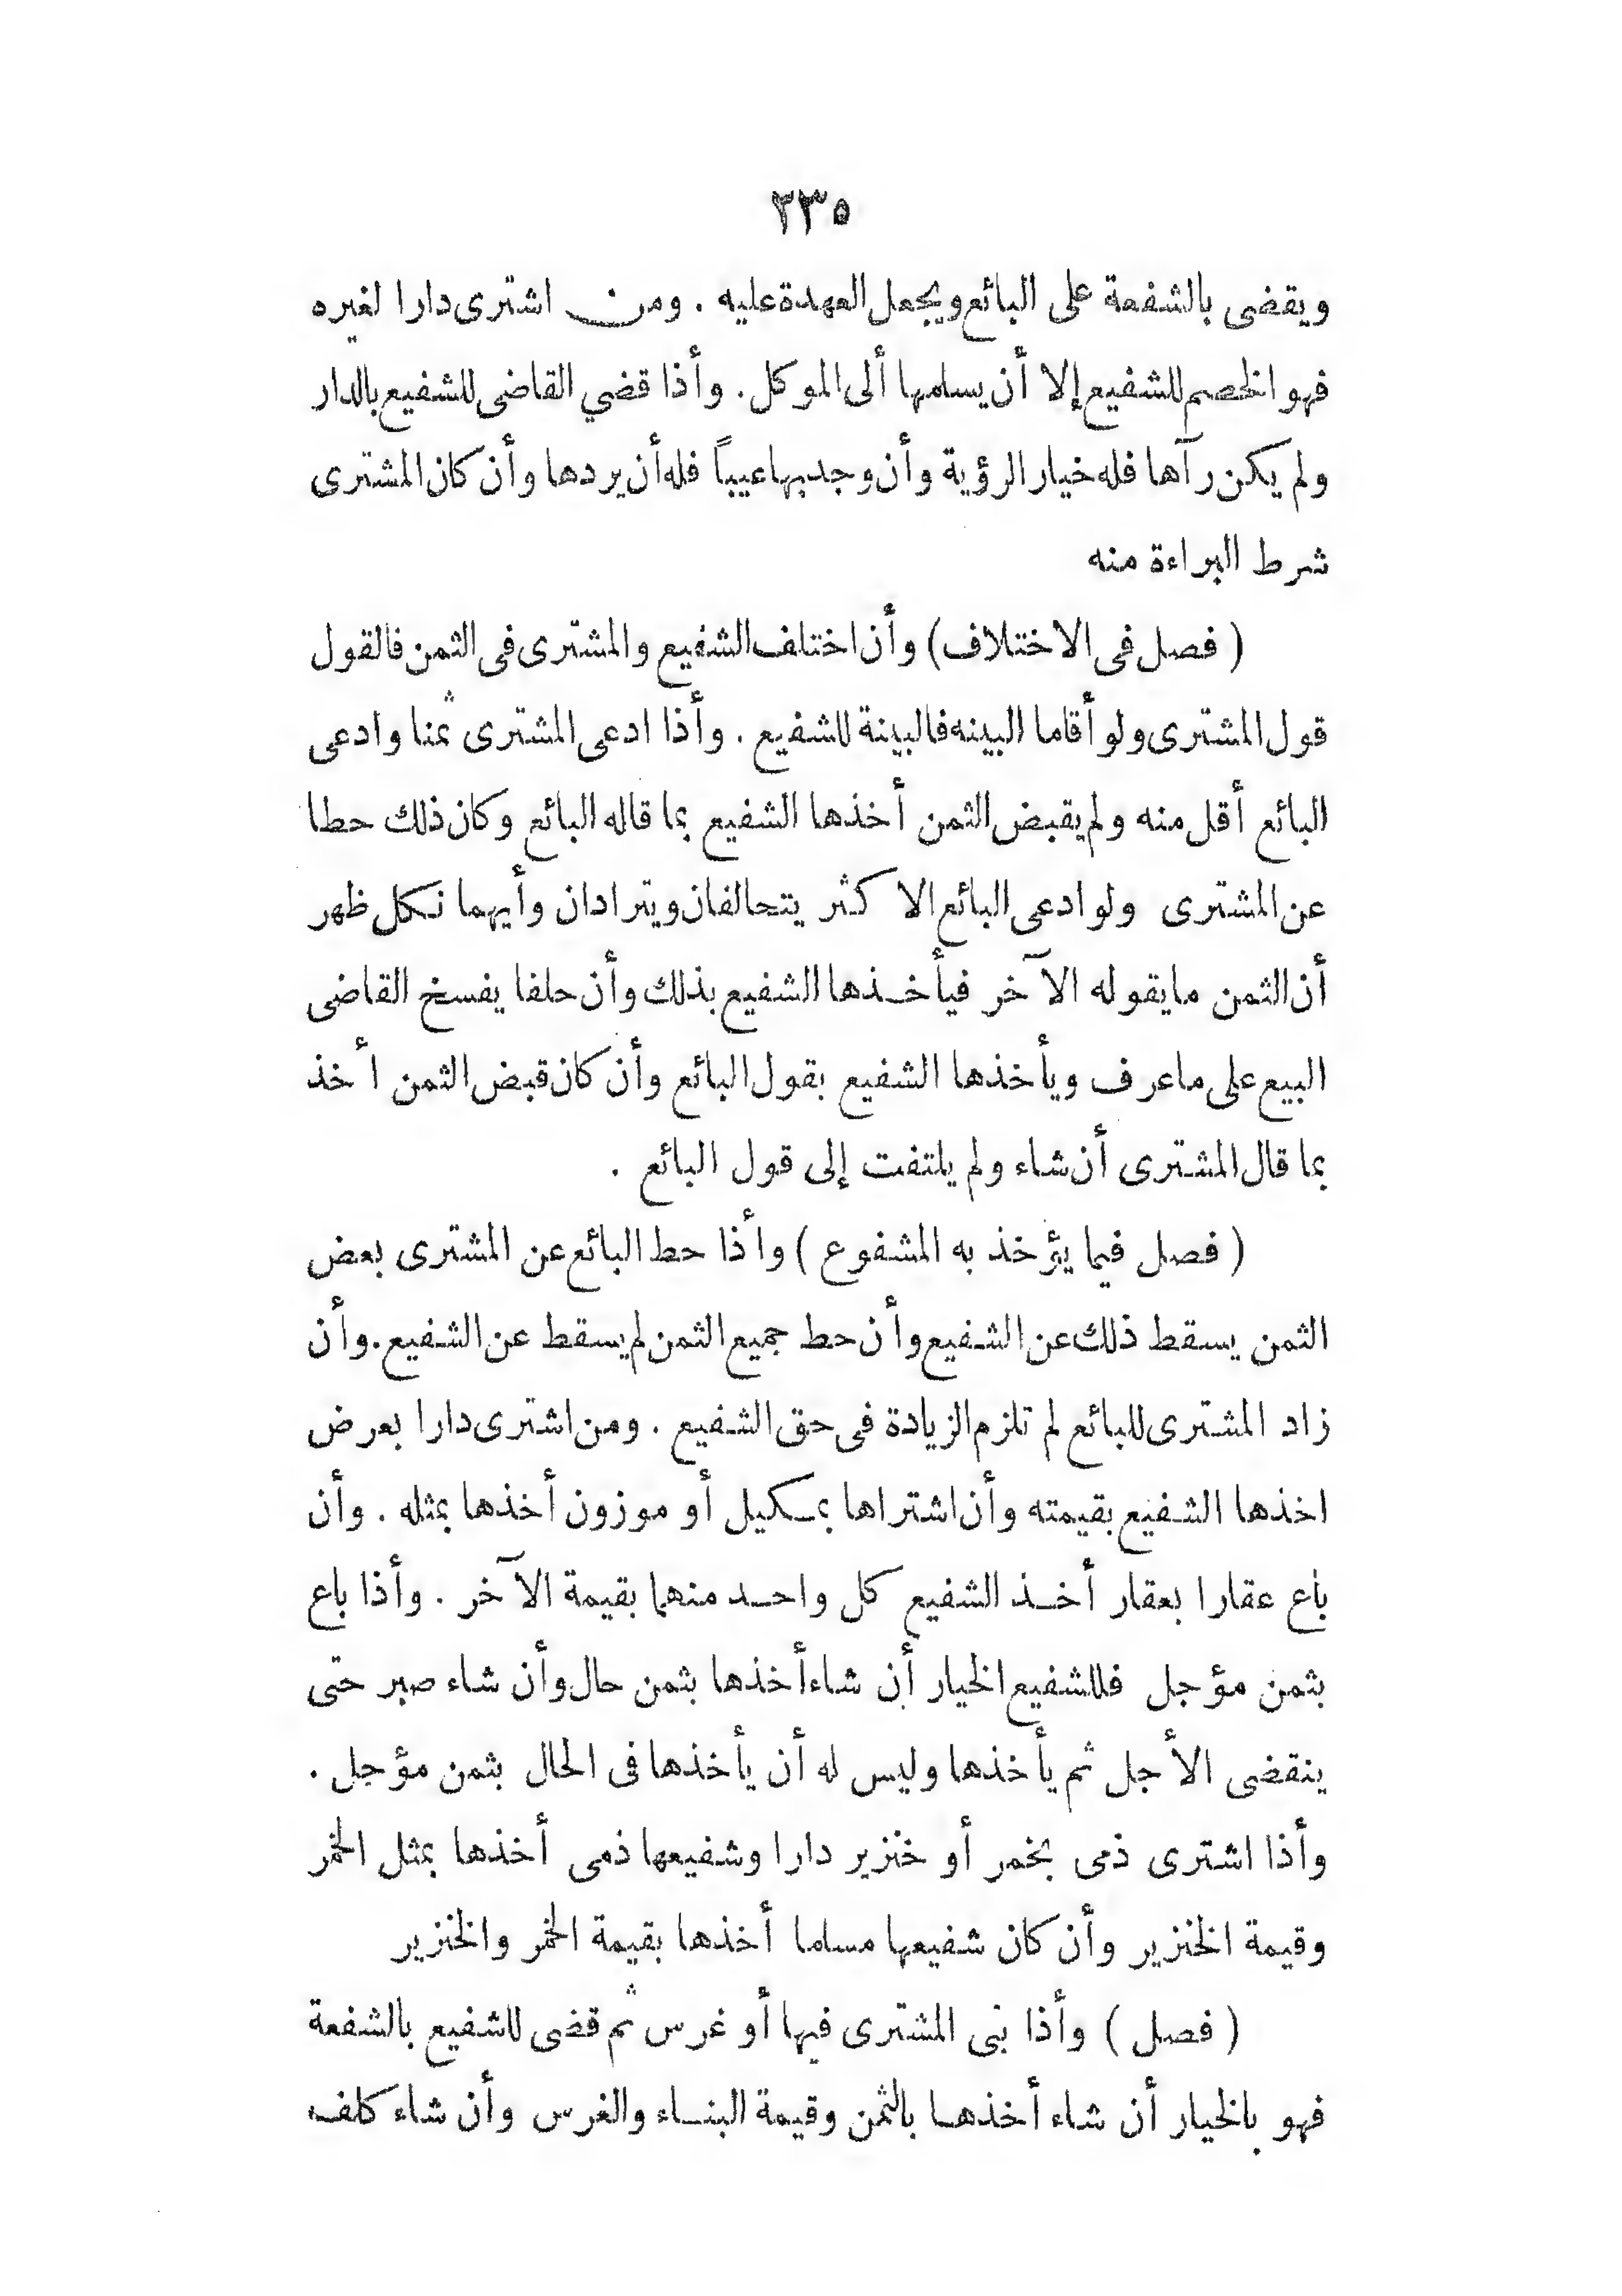 ٢٣٥
ويقضى بالشفعة على البائع ويجعل العهدة عليه . ومن اشترى دارا لغيره
فهو الخصم للشفيع إلا أن يسلمها ألى الموكل . وأذا قضي القاضى للشفيع بالدار
ولم يكن رآها فله خيار الرؤية وأن وجد بها عيباً فله أن يردها وأن كان المشترى
شرط البراءة منه
( فصل فى الاختلاف ) وأن اختلف الشفيع والمشترى فى الثمن فالقول
قول المشترى ولو أقاما البينه فالبينة للشفيع . وأذا ادعى المشترى ثمنا وادعى
البائع أقل منه ولم يقبض الثمن أخذها الشفيع بما قاله البائع وكان ذلك حطا
عن المشترى ولو ادعى البائع الاكثر يتحالفان ويترادان وأيهما نكل ظهر
أن الثمن ما يقوله الآخر فيأخذها الشفيع بذلك وأن حلفا يفسخ القاضى
البيع على ما عرف ويأخذها الشفيع بقول البائع وأن كان قبض الثمن أخذ
بما قال المشترى أن شاء ولم يلتفت إلى قول البائع .
( فصل فيما يؤخذ به المشفوع ) وأذا حط البائع عن المشترى بعض
الثمن يسقط ذلك عن الشفيع وأن حط جميع الثمن لم يسقط عن الشفيع . وأن
زاد المشترى للبائع لم تلزم الزيادة فى حق الشفيع . ومن اشترى دارا بعرض
اخذها الشفيع بقيمته وأن اشتراها بمكيل أو موزون أخذها بمثله . وأن
باع عقارا بعقار أخذ الشفيع كل واحد منهما بقيمة الآخر . وأذا باع
بثمن مؤجل فللشفيع الخيار أن شاء أخذها بثمن حال وأن شاء صبر حتى
ينقضى الأجل ثم يأخذها وليس له أن يأخذها فى الحال بثمن مؤجل .
وأذا اشترى ذمى بخمر أو خنزير دارا وشفيعها ذمى أخذها بمثل الخمر
وقيمة الخنزير وأن كان شفيعها مسلما أخذها بقيمة الخمر والخنزير
( فصل ) وأذا بنى المشترى فيها أو غرس ثم قضى للشفيع بالشفعة
فهو بالخيار أن شاء أخذها بالثمن وقيمة البناء والغرس وأن شاء كلف